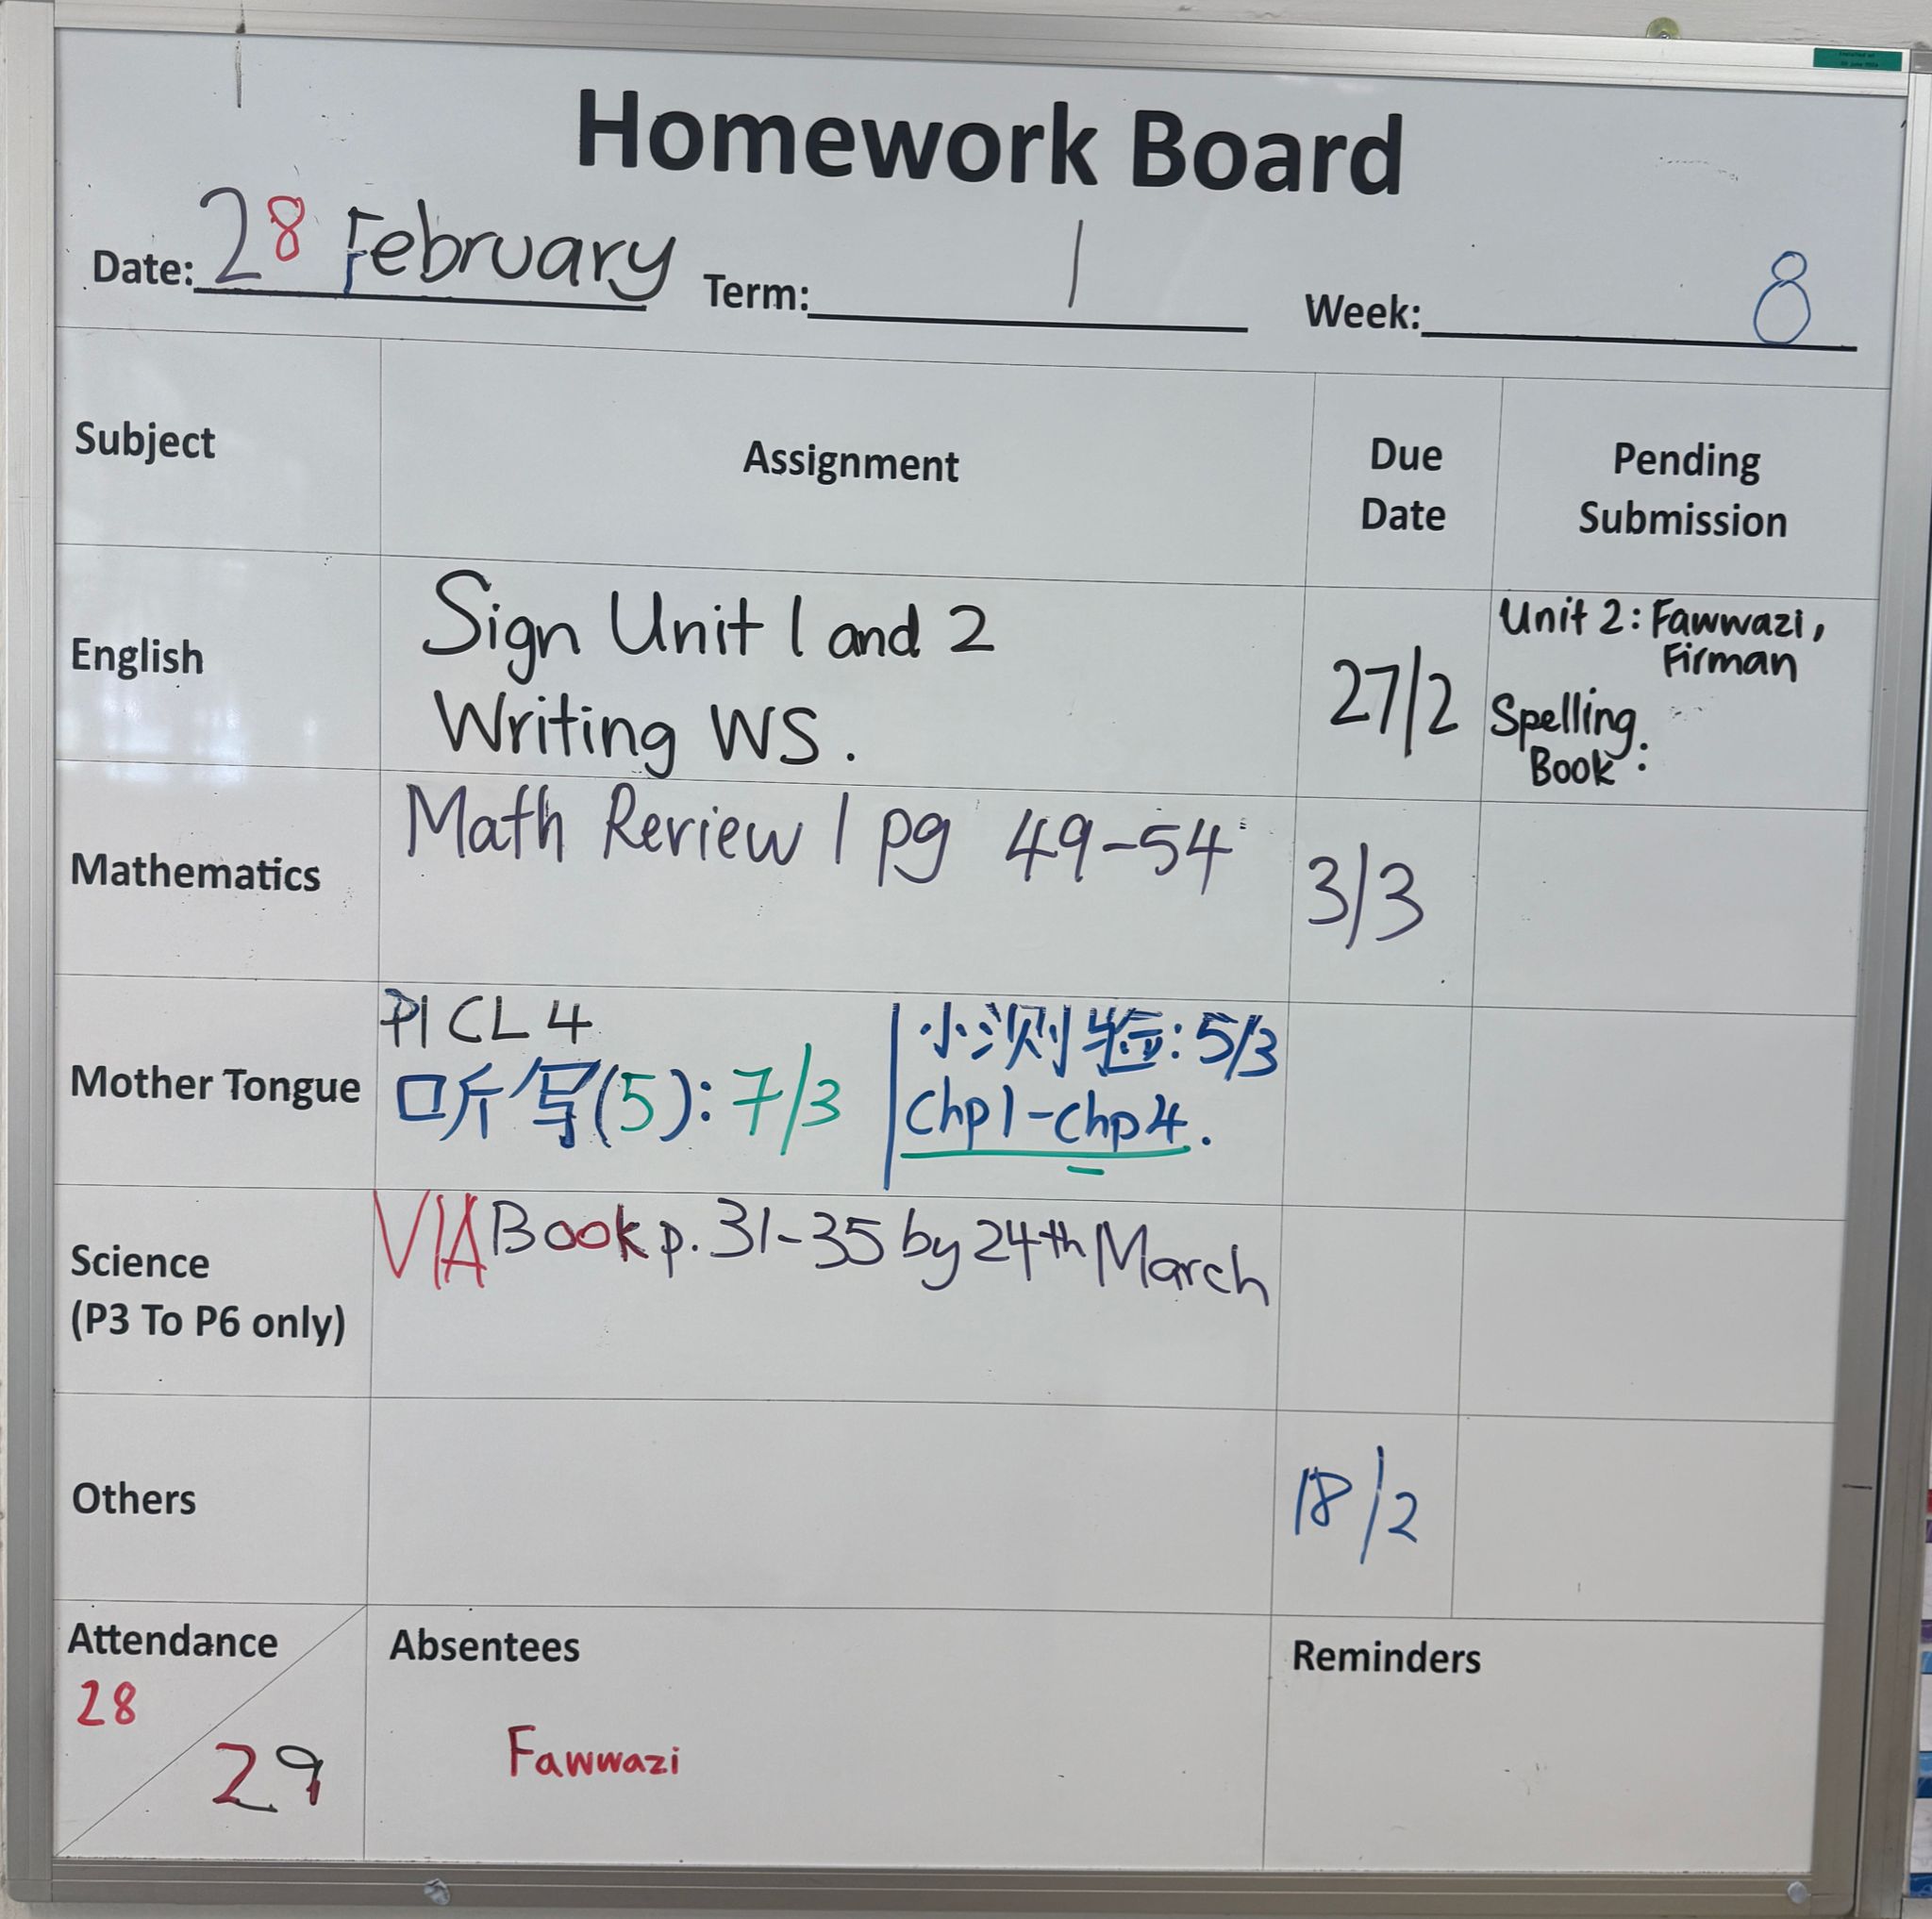 Homework Board
Date: 28 February Term: 1 Week: 8
Subject Assignment Due Date Pending Submission
English
Sign Unit 1 and 2
Writing WS.
27/2
Unit 2: Fawwazi,
Firman
Spelling
Book:
Mathematics
Math Review 1 pg 49-54
3/3
Mother Tongue
P1 CL 4
听写(5): 7/3
小测验: 5/3
Chp1-Chp4.
Science
(P3 To P6 only)
VIA Book p. 31-35 by 24th March
Others
18/2
Attendance
28
29
Absentees
Fawwazi
Reminders